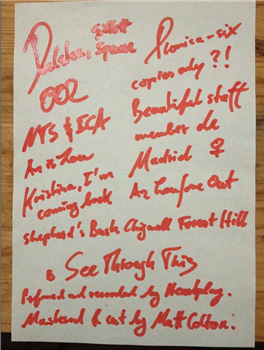 Space
Florica-six
copies only?!
002
Beautiful staff
member de
Madrid ♀
NTS & ICA
An
Kristina, I'm
coming back
An
Out
Shepherd's Bush Chigwell Forest Hill
B See Through This
Performed and recorded by
Mastered & cut by Matt Colton.